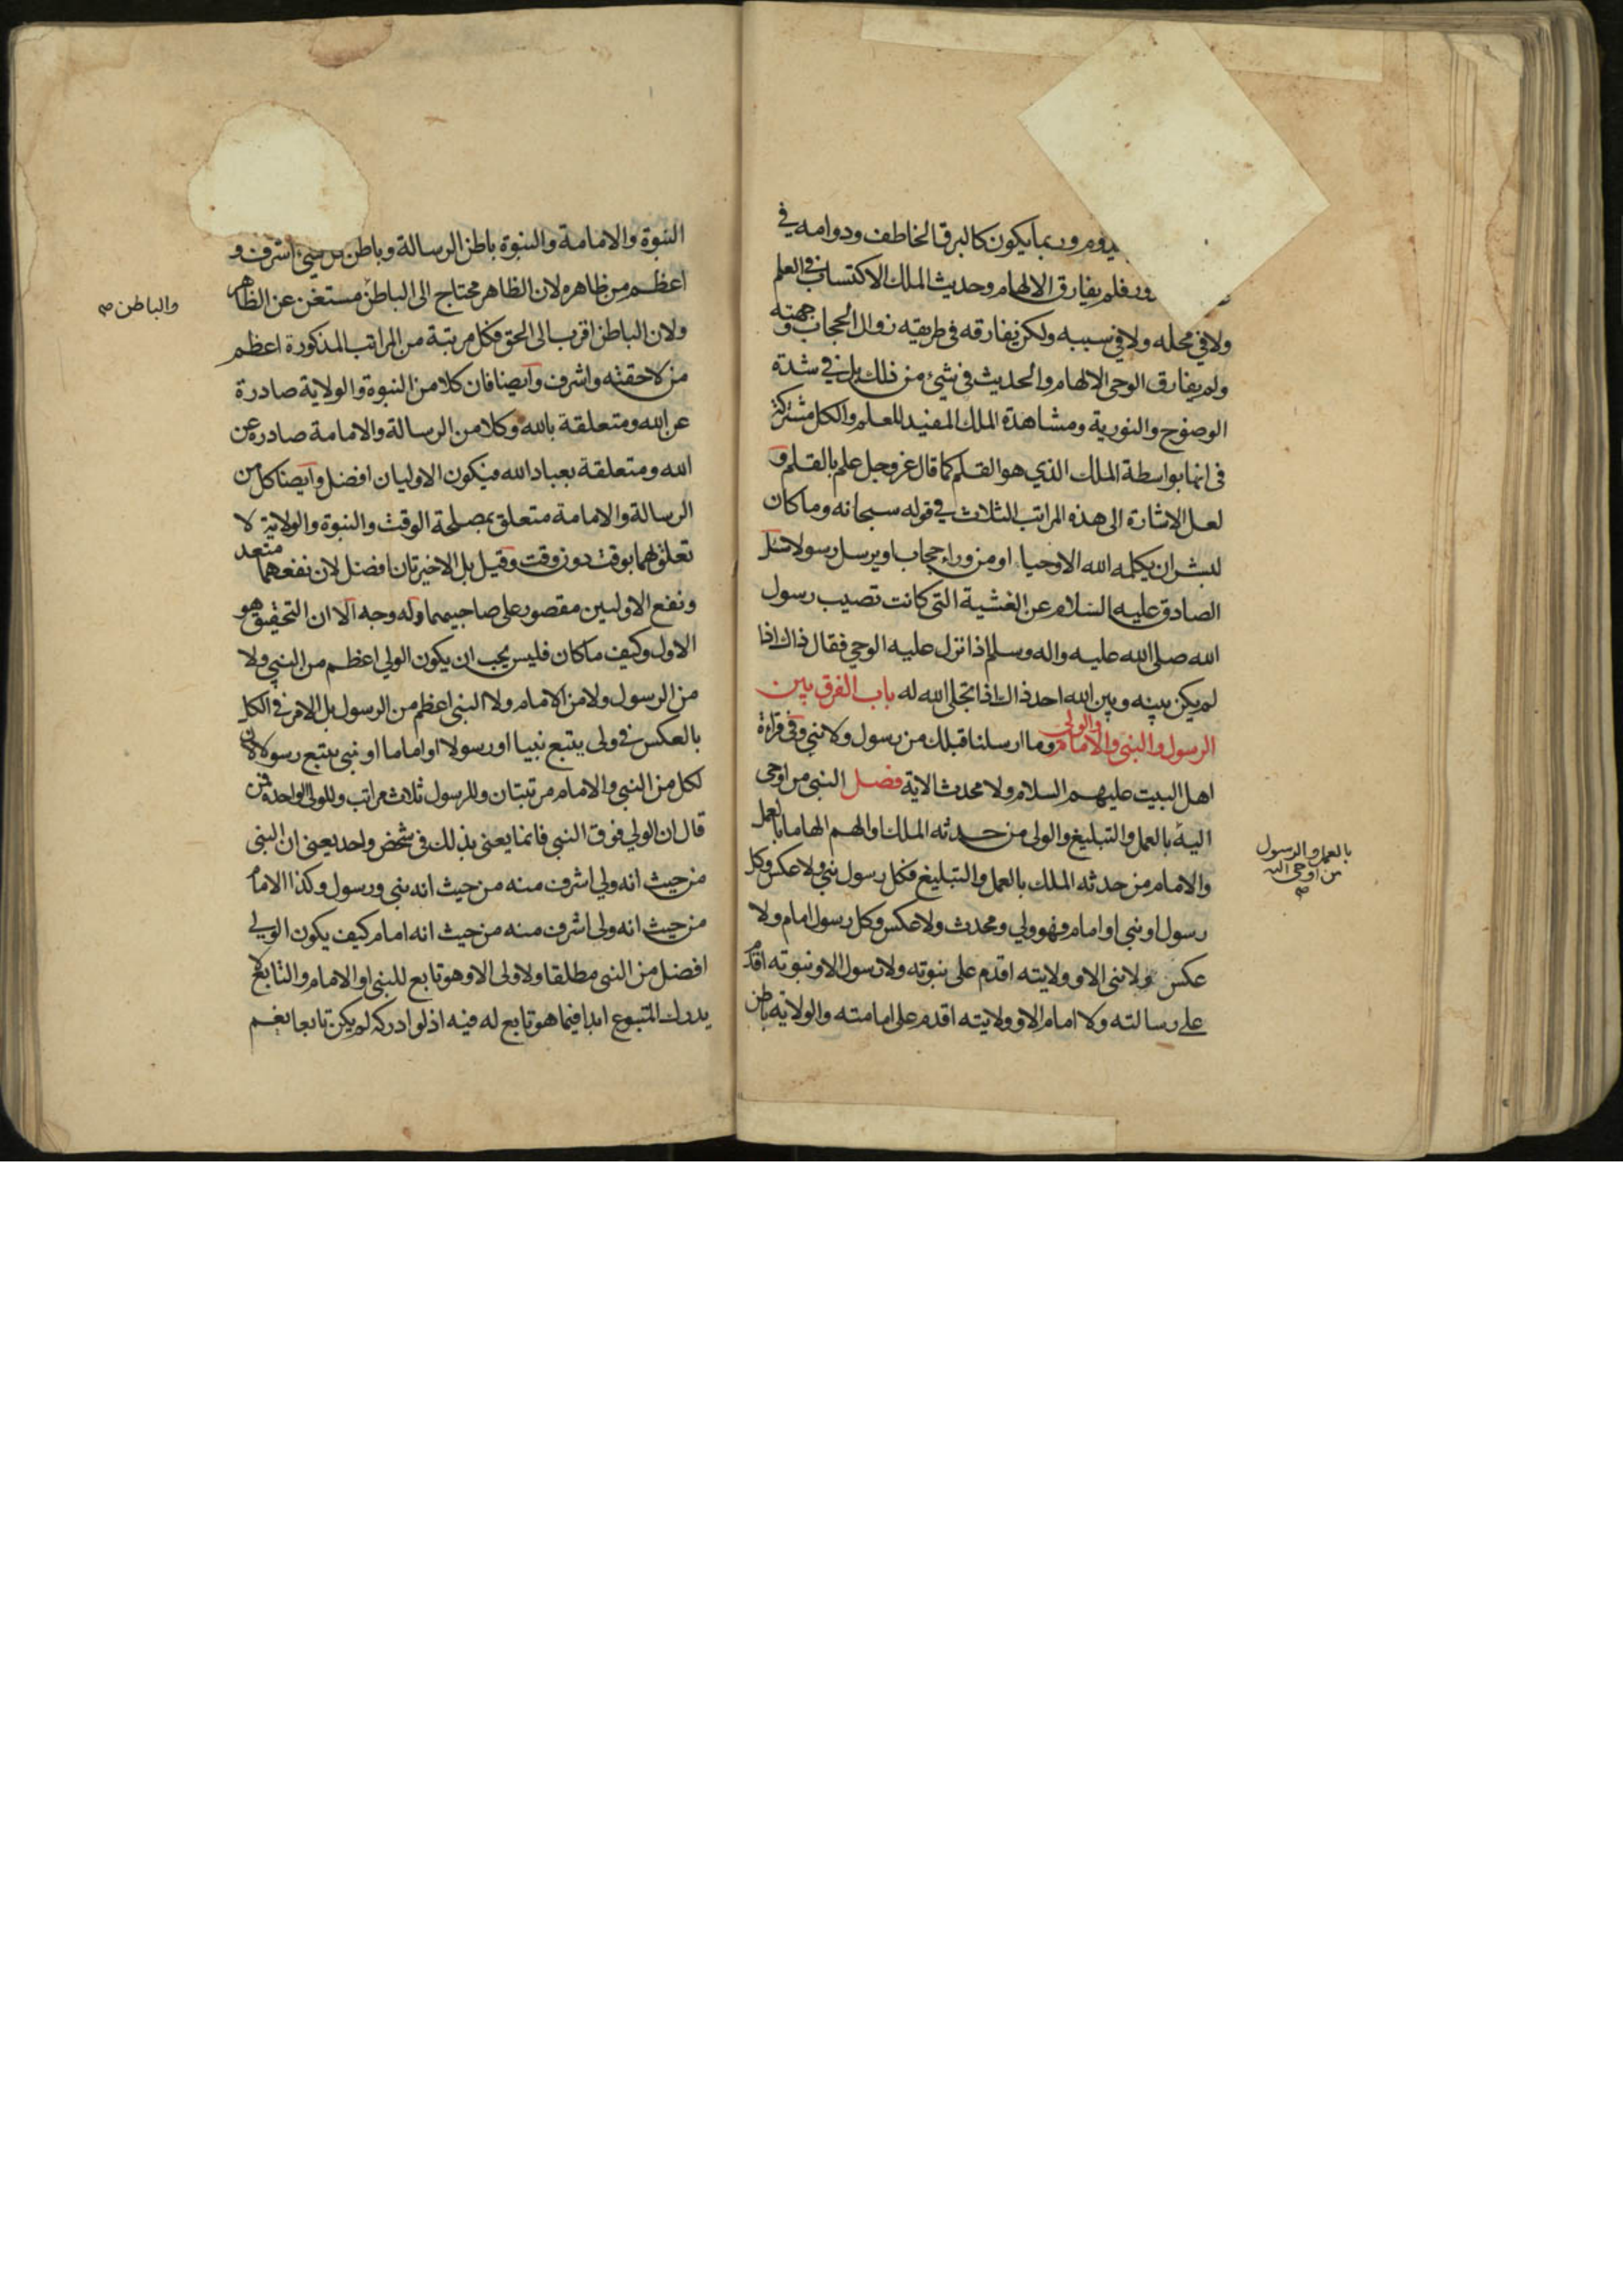 يدوم وربما يكون كالبرق الخاطف ودوامه في
فلم يفارق الالهام وحديث الملك الاكتساب في العلم
ولا في محله ولا في سببه ولكن يفارقه في طريقه زوال الحجاب وجهته
ولم يفارق الوحي الالهام والحديث في شيء من ذلك بل في شدة
الوضوح والنورية ومشاهدة الملك المفيد للعلم والكل مشتركة
في انها بواسطة الملك الذي هو القلم كما قال عز وجل علم بالقلم و
لعل الاشارة الى هذه المراتب الثلاث في قوله سبحانه وما كان
لبشر ان يكلمه الله الا وحيا او من وراء حجاب او يرسل رسولا سئل
الصادق عليه السلام عن الغشية التي كانت تصيب رسول
الله صلى الله عليه واله وسلم اذا نزل عليه الوحي فقال ذاك اذا
لم يكن بينه وبين الله احد ذاك اذا تجلى الله له باب الفرق بين
الرسول والنبي والامام والولي وما ارسلنا قبلك من رسول ولا نبي وفي قراءة
اهل البيت عليهم السلام ولا محدث الاية فصل النبي من اوحي
اليه بالعمل والتبليغ والولي من حدثه الملك او الهم الهاما بالعمل
بالعمل والرسول
من اوحي اليه
صح
والامام من حدثه الملك بالعمل والتبليغ فكل رسول نبي ولا عكس وكل
رسول او نبي او امام فهو ولي ومحدث ولا عكس وكل رسول امام ولا
عكس ولا نبي الا وولايته اقدم على نبوته ولا رسول الا ونبوته اقدم
على رسالته ولا امام الا وولايته اقدم على امامته والولاية باطن
النبوة والامامة والنبوة باطن الرسالة وباطن كل شيء اشرف و
اعظم من ظاهره لان الظاهر محتاج الى الباطن مستغن عن الظاهر
والباطن صح
ولان الباطن اقرب الى الحق فكل مرتبة من المراتب المذكورة اعظم
من لاحقته واشرف وايضا فان كلا من النبوة والولاية صادرة
عن الله ومتعلقة بالله وكلا من الرسالة والامامة صادرة عن
الله ومتعلقة بعباد الله فيكون الاوليان افضل وايضا كل من
الرسالة والامامة متعلق بمصلحة الوقت والنبوة والولاية لا
تعلق لهما بوقت دون وقت وقيل بل الاخيرتان افضل لان نفعهما متعد
ونفع الاوليين مقصور على صاحبيهما وله وجه الا ان التحقيق هو
الاول وكيف ما كان فليس يجب ان يكون الولي اعظم من النبي ولا
من الرسول ولا من الامام ولا النبي اعظم من الرسول بل الامر في الكل
بالعكس في ولي يتبع نبيا او رسولا او اماما او نبي يتبع رسولا لان
لكل من النبي والامام مرتبتان وللرسول ثلاث مراتب وللولي الواحدة فمن
قال ان الولي فوق النبي فانما يعني بذلك في شخص واحد يعني ان النبي
من حيث انه ولي اشرف منه من حيث انه نبي ورسول وكذا الامام
من حيث انه ولي اشرف منه من حيث انه امام كيف يكون الولي
افضل من النبي مطلقا ولا ولي الا وهو تابع للنبي او الامام والتابع لا
يدرك المتبوع ابدا فيما هو تابع له فيه اذ لو ادركه لم يكن تابعا نعم